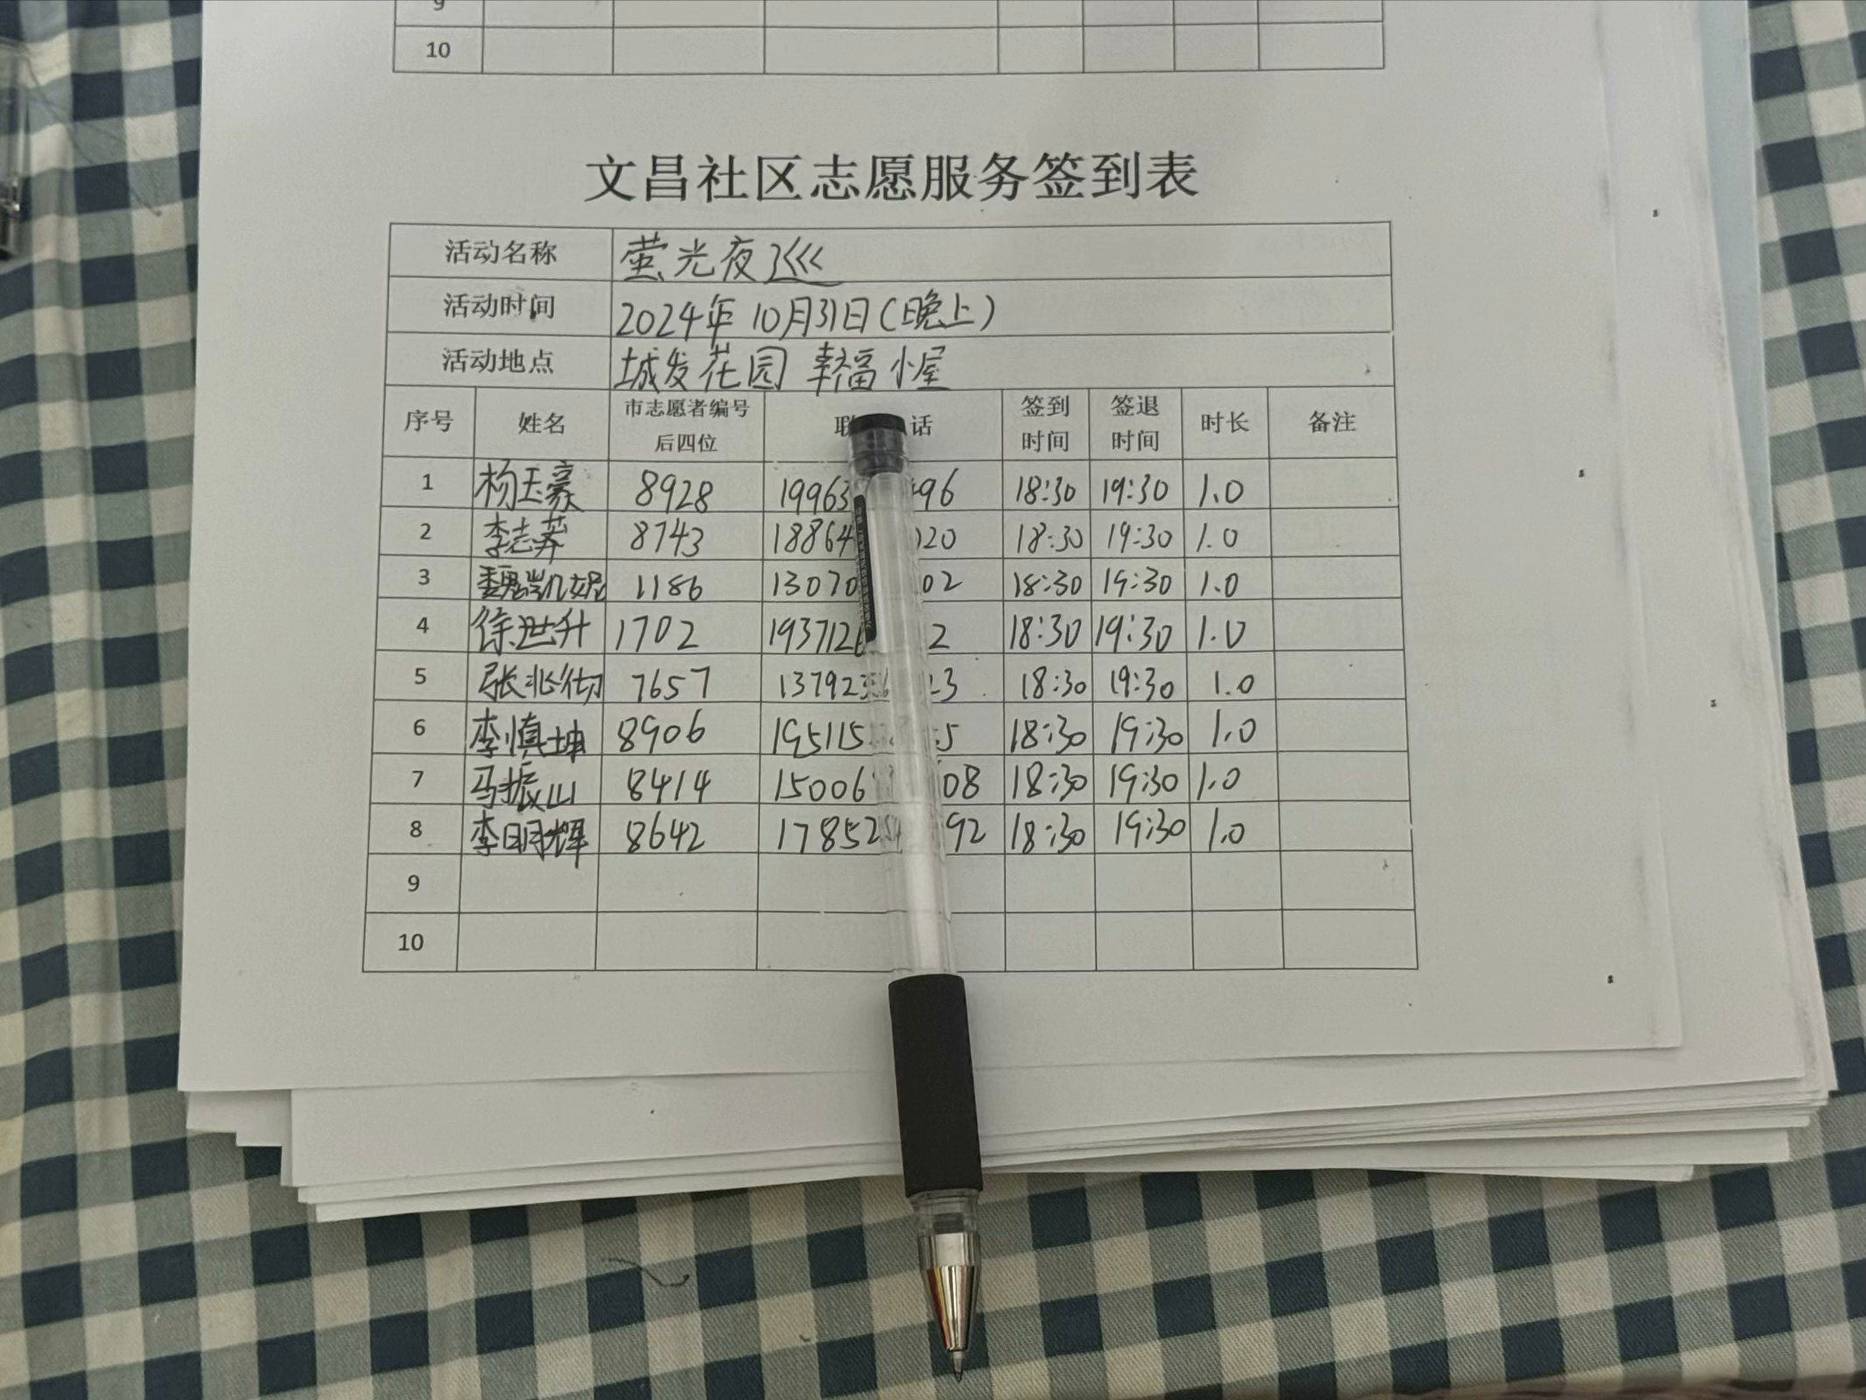 9
10
文昌社区志愿服务签到表
活动名称 萤光夜巡
活动时间 2024年10月31日(晚上)
活动地点 城发花园 幸福小屋
序号 姓名 市志愿者编号后四位 联 话 签到时间 签退时间 时长 备注
1 杨玉豪 8928 19963 96 18:30 19:30 1.0
2 李志 8743 18864 020 18:30 19:30 1.0
3 魏凯 1186 13070 02 18:30 19:30 1.0
4 徐世升 1702 193712 2 18:30 19:30 1.0
5 张兆彻 7657 13792 23 18:30 19:30 1.0
6 李慎坤 8906 195115 5 18:30 19:30 1.0
7 马振山 8414 15006 08 18:30 19:30 1.0
8 李明辉 8642 17852 92 18:30 19:30 1.0
9
10